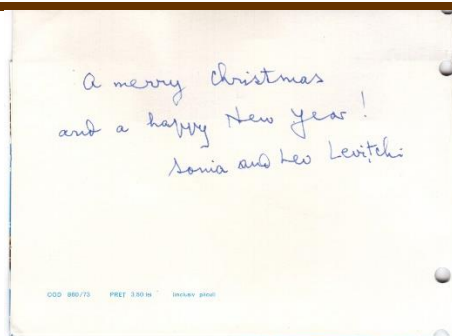 A merry Christmas
and a happy New Year!
Sonia and Leo Levitchi
COD 880/73 PREȚ 3,50 lei (inclusiv plicul)